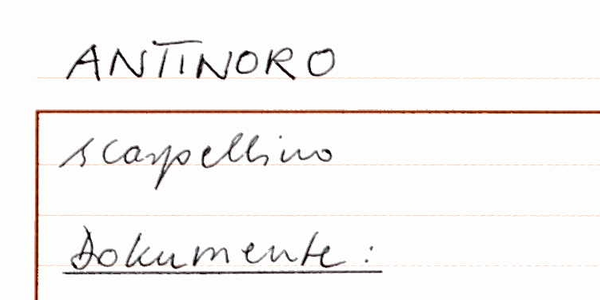 ANTINORO
scarpellino
Dokumente: